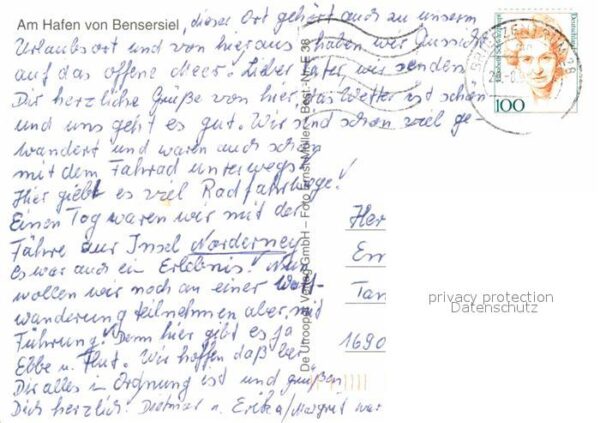 Am Hafen von Bensersiel, dieser Ort gehört auch zu unserm
Urlaubsort und von hieraus haben wir Aussicht
auf das offene Meer. Lieber Vater, wir senden
Dir herzliche Grüße von hier, das Wetter ist schön
und uns geht es gut. Wir sind schon viel ge-
wandert und waren auch schon
mit dem Fahrad unterwegs.
Hier giebt es viel Radfahrwege!
Einen Tag waren wir mit der
Fähre zur Insel Norderney
Es war auch ein Erlebnis! Nun
wollen wir noch an einer Watt-
wanderung teilnehmen aber mit
Führung! Denn hier gibt es ja
Ebbe u. Flut. Wir hoffen daß bei
Dir alles in Ordnung ist und grüßen
Dich herzlich. Dietmar u. Erika/Margrit war
De Utrooper Verlag GmbH – Foto Ernst Müller – Best.-Nr. E 38
100
Deutsche
Her
Em
Tan
1690
privacy protection
Datenschutz